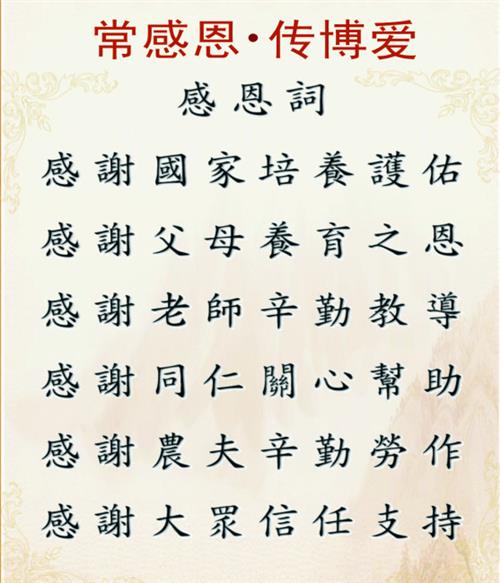 常感恩·传博爱
感恩詞
感謝國家培養護佑
感謝父母養育之恩
感謝老師辛勤教導
感謝同仁關心幫助
感謝農夫辛勤勞作
感謝大眾信任支持